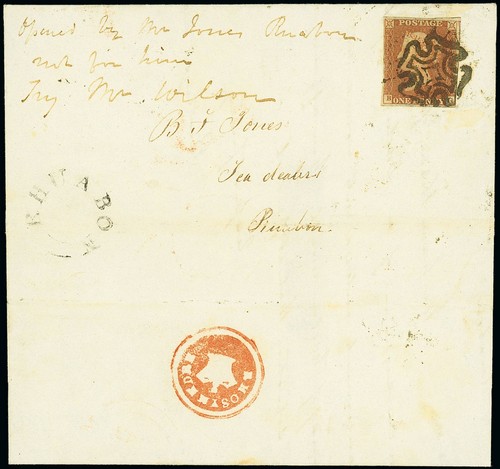 Opened by Mr Jones Ruabon
not for him
Try Mr Wilson
B J Jones
Tea dealer
Ruabon
RHUABON
POSTAGE
ONE PENNY